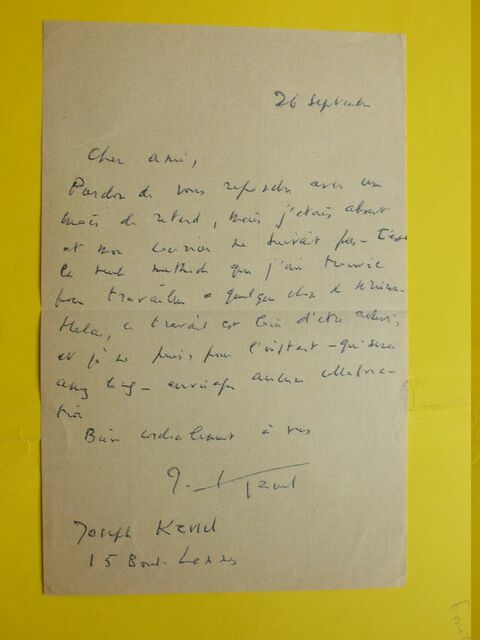 26 Septembre
Cher ami,
Pardon de vous répondre avec un
mois de retard, mais j'étais absent
et mon courrier ne suivait pas - C'est
la seule méthode que j'ai trouvée
pour travailler à quelque chose de
Hélas, ce travail est loin d'être achevé,
et je ne puis, pour l'instant - qui sera
assez long - envisager aucune collabora-
tion
Bien cordialement à vous
J. Kessel
Joseph Kessel
15 Boul. Lannes